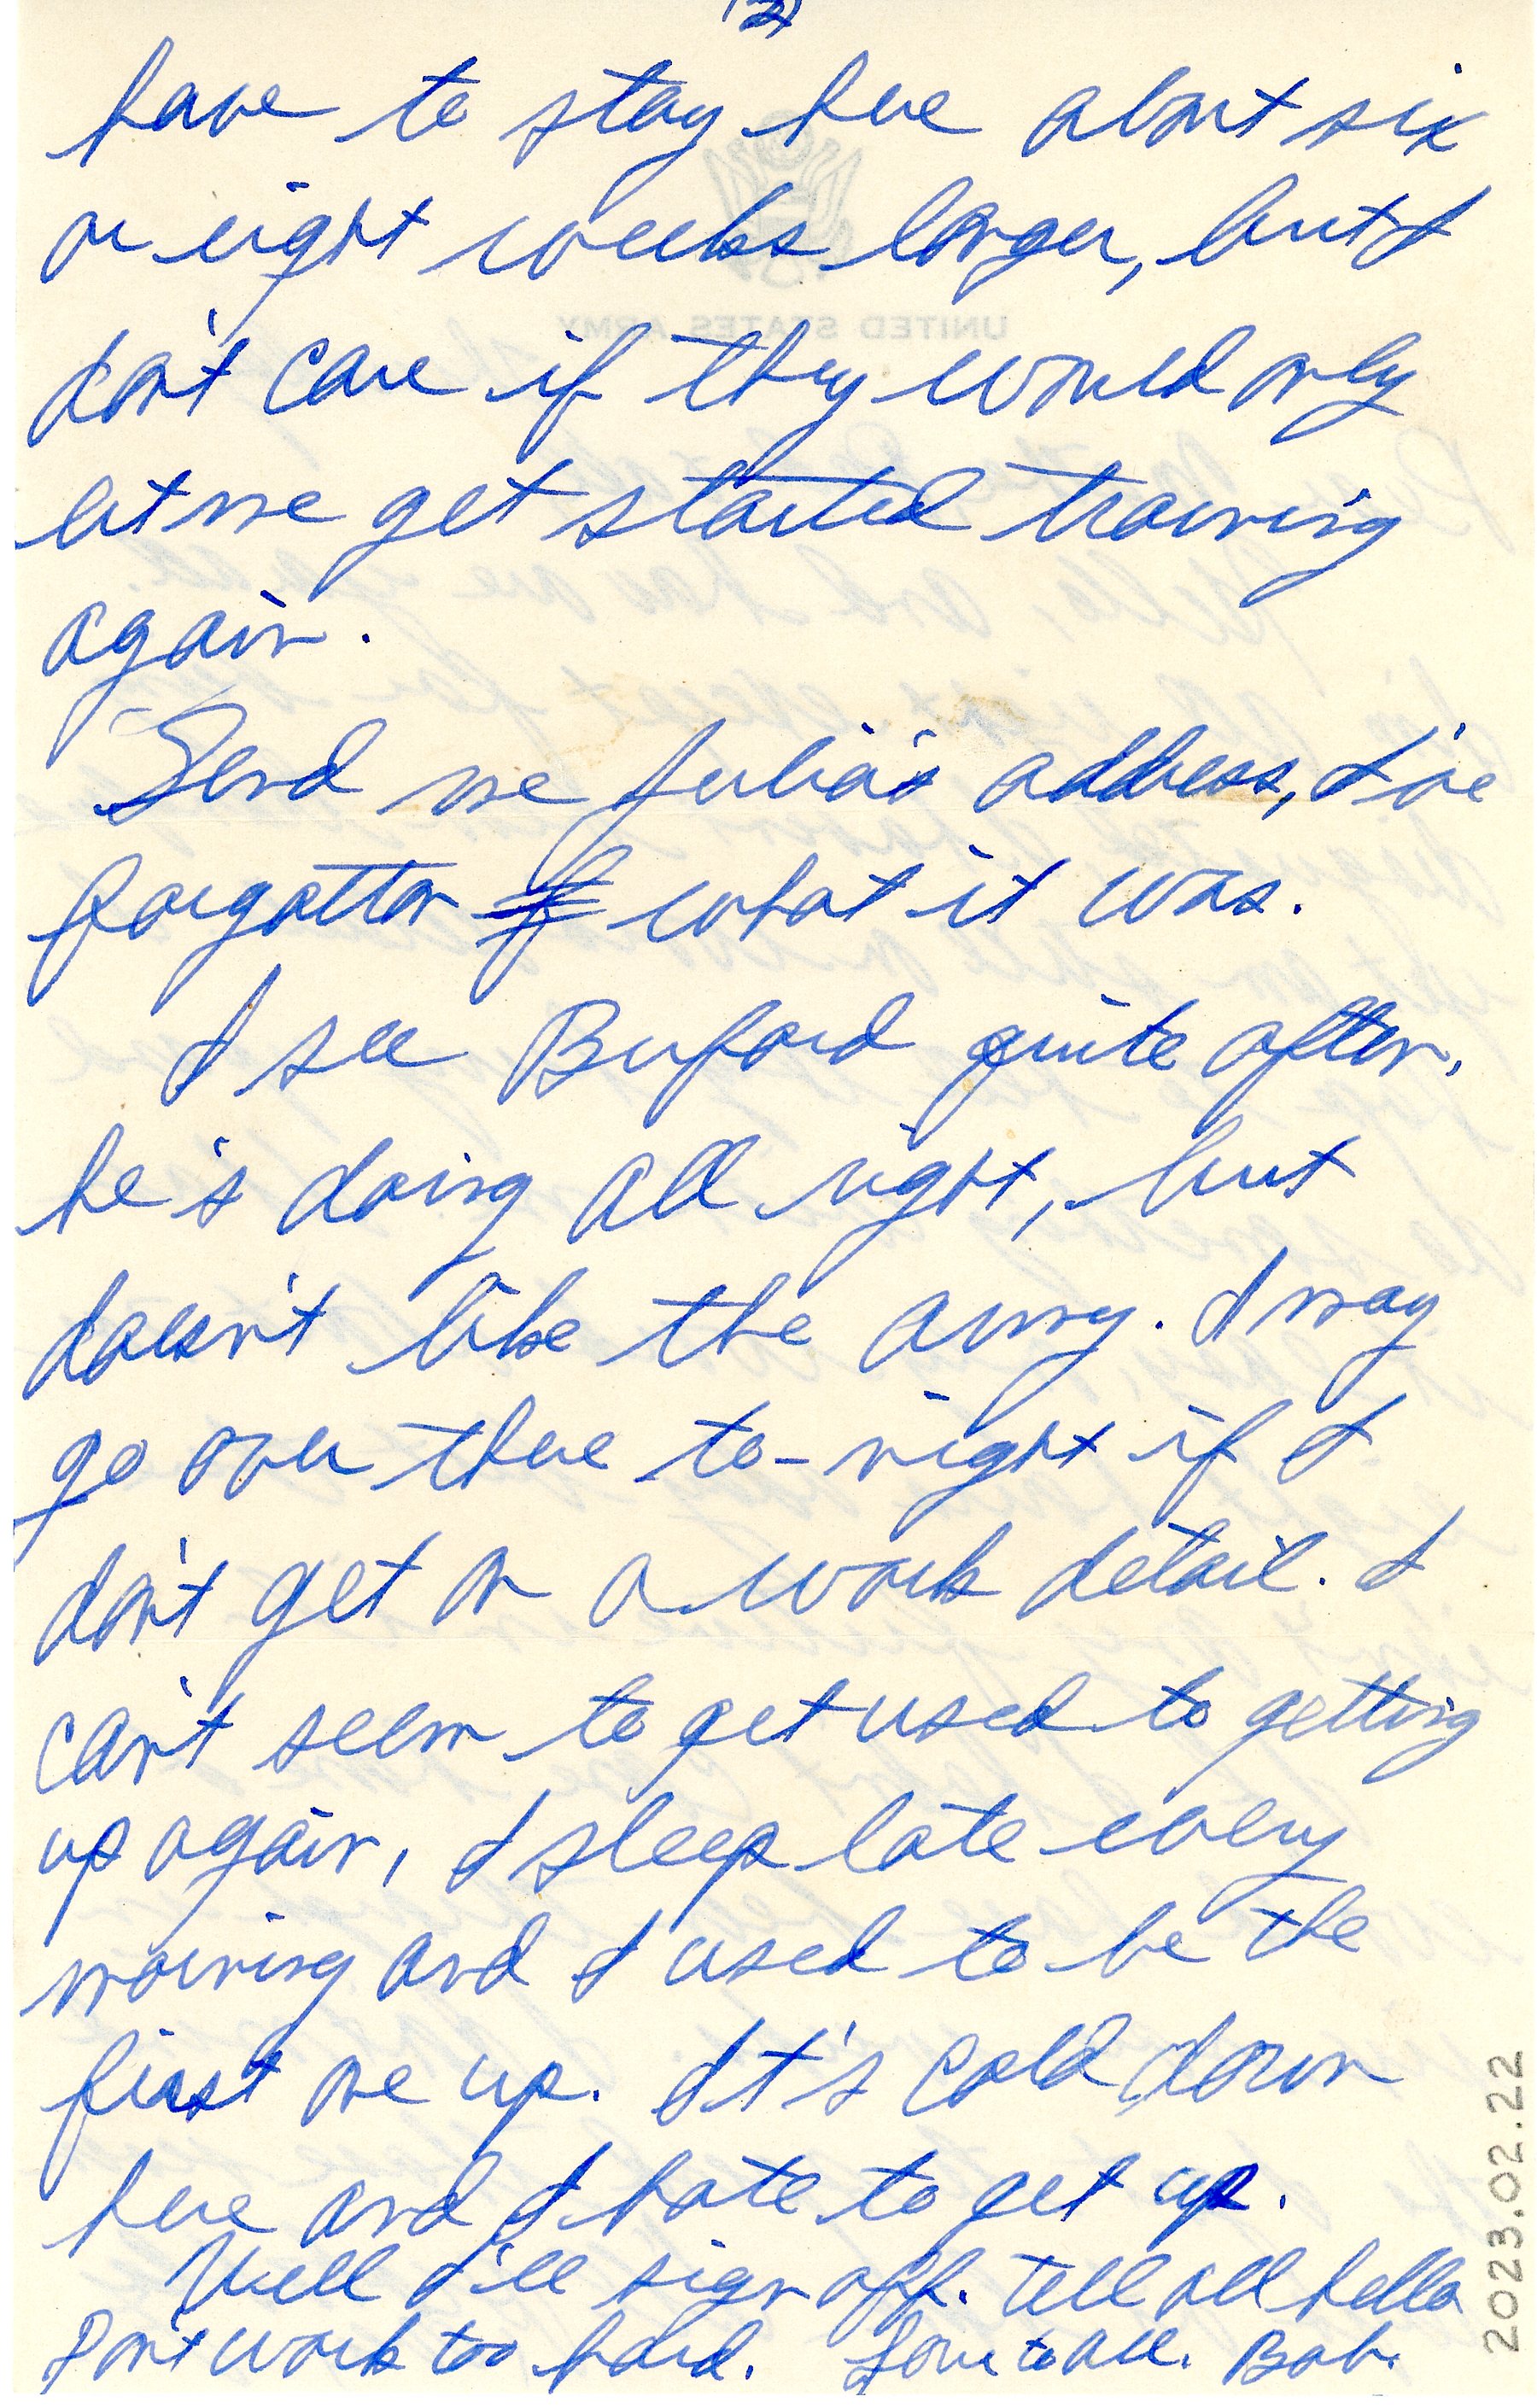 (2)
have to stay here about six
or eight weeks longer, but I
don't care if they would only
let me get started training
again.
Send me Julia's address, I've
forgotton what it was.
I see Buford quite often,
he's doing all right, but
doesn't like the army. I may
go over there to-night if I
don't get on a work detail. I
can't seem to get used to getting
up again, I sleep late every
morning and I used to be the
first one up. It's cold down
here and I hate to get up.
Well I'll sign off. Tell all hello
Don't work too hard. Love to all. Bob.
UNITED STATES ARMY
2023.02.22